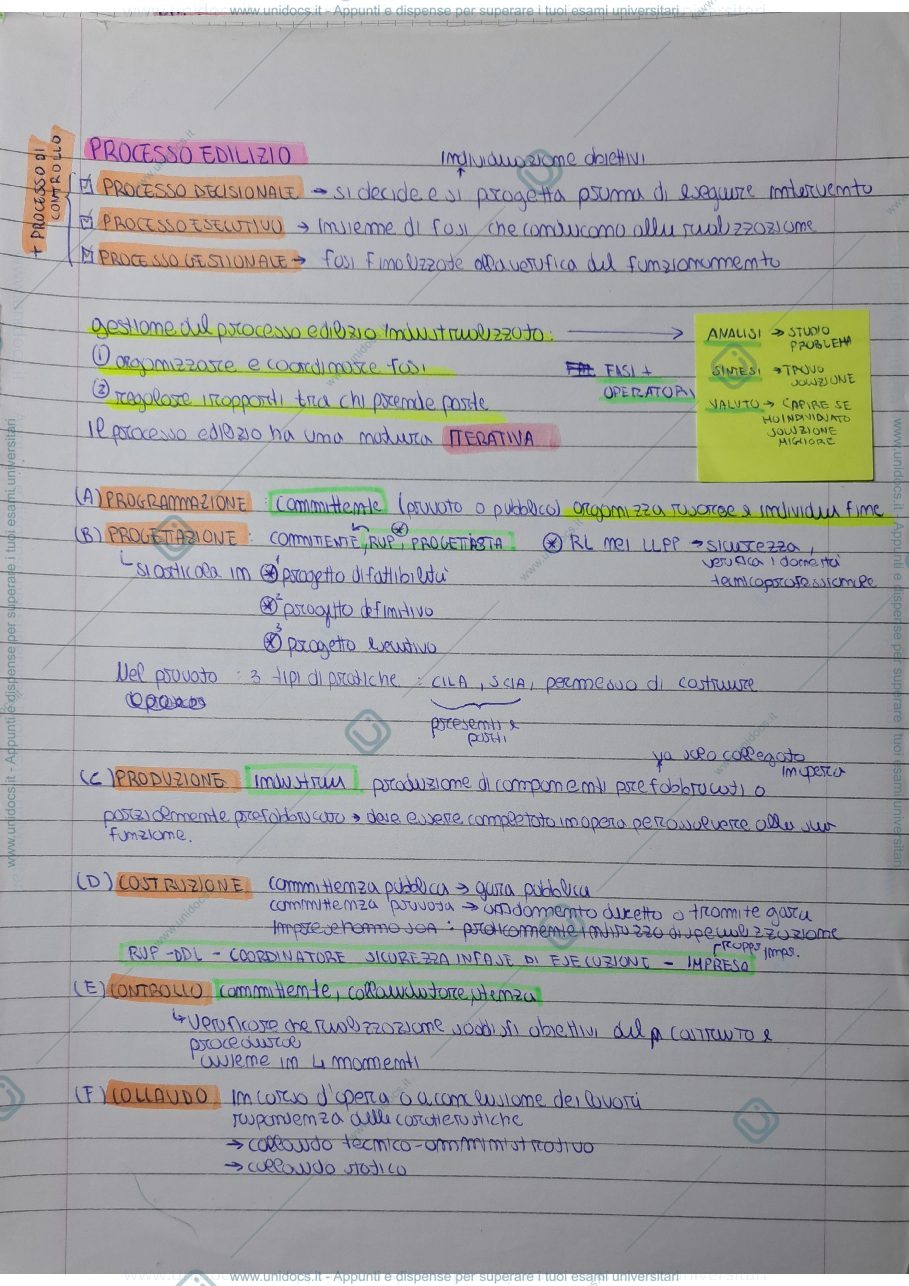 www.unidocs.it - Appunti e dispense per superare i tuoi esami universitari
+ PROCESSO DI CONTROLLO
PROCESSO EDILIZIO
individuazione obiettivi
PROCESSO DECISIONALE → si decide e si progetta prima di eseguire intervento
PROCESSO ESECUTIVO → Insieme di fasi che conducono alla realizzazione
PROCESSO GESTIONALE → fasi finalizzate alla verifica del funzionamento
gestione del processo edilizio industrializzato: →
① organizzare e coordinare fasi
FASI +
OPERATORI
② regolare i rapporti tra chi prende parte
Il processo edilizio ha una natura ITERATIVA
ANALISI → STUDIO
PROBLEMA
SINTESI → TROVO
SOLUZIONE
VALUTO → CAPIRE SE
HO INDIVIDUATO
SOLUZIONE
MIGLIORE
(A) PROGRAMMAZIONE : committente (privato o pubblico) organizza risorse e individua fine
(B) PROGETTAZIONE : COMMITTENTE, RUP, PROGETTISTA ⊛ RL nei LLPP → sicurezza,
verifica idoneità
tecnicoprofessionale
si articola in ⊛1 progetto di fattibilità
⊛2 progetto definitivo
⊛3 progetto esecutivo
Nel privato : 3 tipi di pratiche : CILA, SCIA, permesso di costruire
presenti e
parti
va solo collegato
in opera
(C) PRODUZIONE industria produzione di componenti prefabbricati o
parzialmente prefabbricato → deve essere completato in opera per assolvere alla sua
funzione.
(D) COSTRUZIONE committenza pubblica → gara pubblica
committenza privata → affidamento diretto o tramite gara
Imprese hanno SOA : praticamente indirizzo di specializzazione
rapp. imps.
RUP - DDL - COORDINATORE SICUREZZA IN FASE DI ESECUZIONE - IMPRESA
(E) CONTROLLO committente, collaudatore, utenza
↳ verificare che realizzazione soddisfi obiettivi del contratto e
procedure
avviene in 4 momenti
(F) COLLAUDO In corso d'opera o a conclusione dei lavori
rispondenza delle caratteristiche
→ collaudo tecnico-amministrativo
→ collaudo statico
www.unidocs.it - Appunti e dispense per superare i tuoi esami universitari